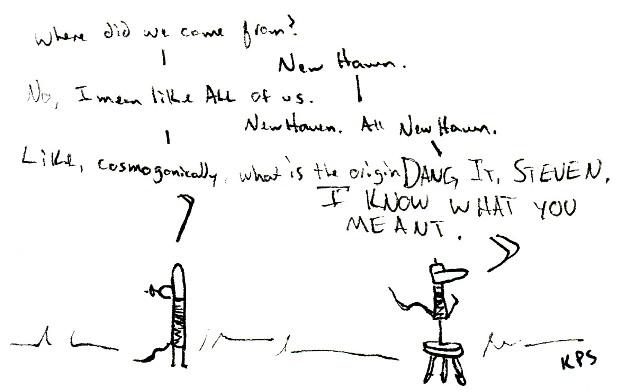 Where did we come from?
New Haven.
No, I mean like All of us.
New Haven. All New Haven.
Like, cosmogonically, what is the origin
DANG IT, STEVEN.
I KNOW WHAT YOU
MEANT.
KPS